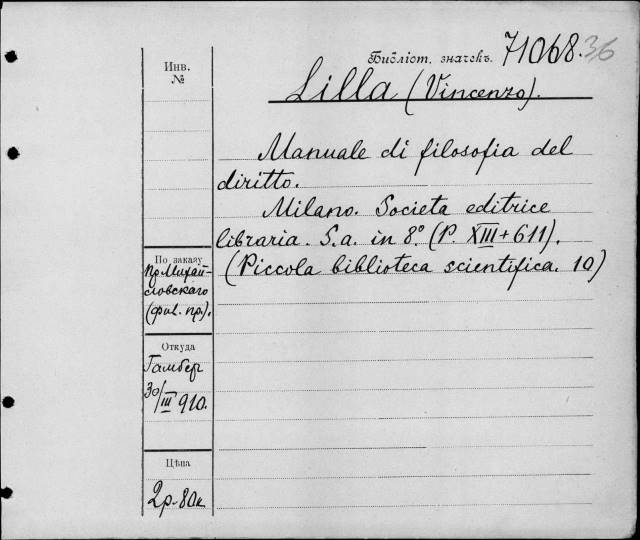 Инв.
№
Библіот. значекъ. 71068. 36
Lilla (Vincenzo).
Manuale di filosofia del
diritto.
Milano. Societa editrice
libraria. S.a. in 8º. (P. XIII+611).
(Piccola biblioteca scientifica. 10)
По заказу
пр. Михай-
ловскаго
(фил. пр.).
Откуда
Гамбер
30/III 910.
Цѣна
2р.-80к